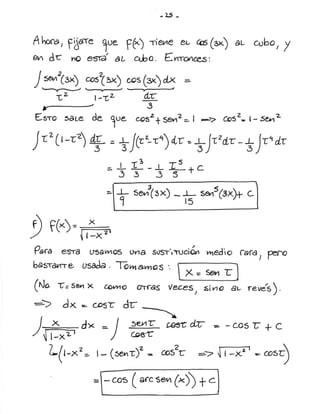 - 25 -
Ahora, fíjate que f(x) tiene el cos(3x) al cubo, y
en dt no está al cubo. Entonces:
∫ sen²(3x) cos²(3x) cos(3x) dx =
t² 1-t² dt/3
Esto sale de que cos² + sen² = 1 => cos² = 1 - sen²
∫ t² (1-t²) dt/3 = 1/3 ∫ (t² - t⁴) dt = 1/3 ∫ t² dt - 1/3 ∫ t⁴ dt
= 1/3 t³/3 - 1/3 t⁵/5 + C
= 1/9 sen³(3x) - 1/15 sen⁵(3x) + C
f) f(x) = x/√(1-x²)
Para esta usamos una sustitución medio rara, pero
bastante usada. Tomamos: x = sen t
(No t = sen x como otras veces, sino al revés).
=> dx = cos t dt
∫ x/√(1-x²) dx = ∫ sen t/cos t cos t dt = - cos t + C
(1-x² = 1 - (sen t)² = cos² t => √(1-x²) = cos t)
= - cos (arc sen (x)) + C